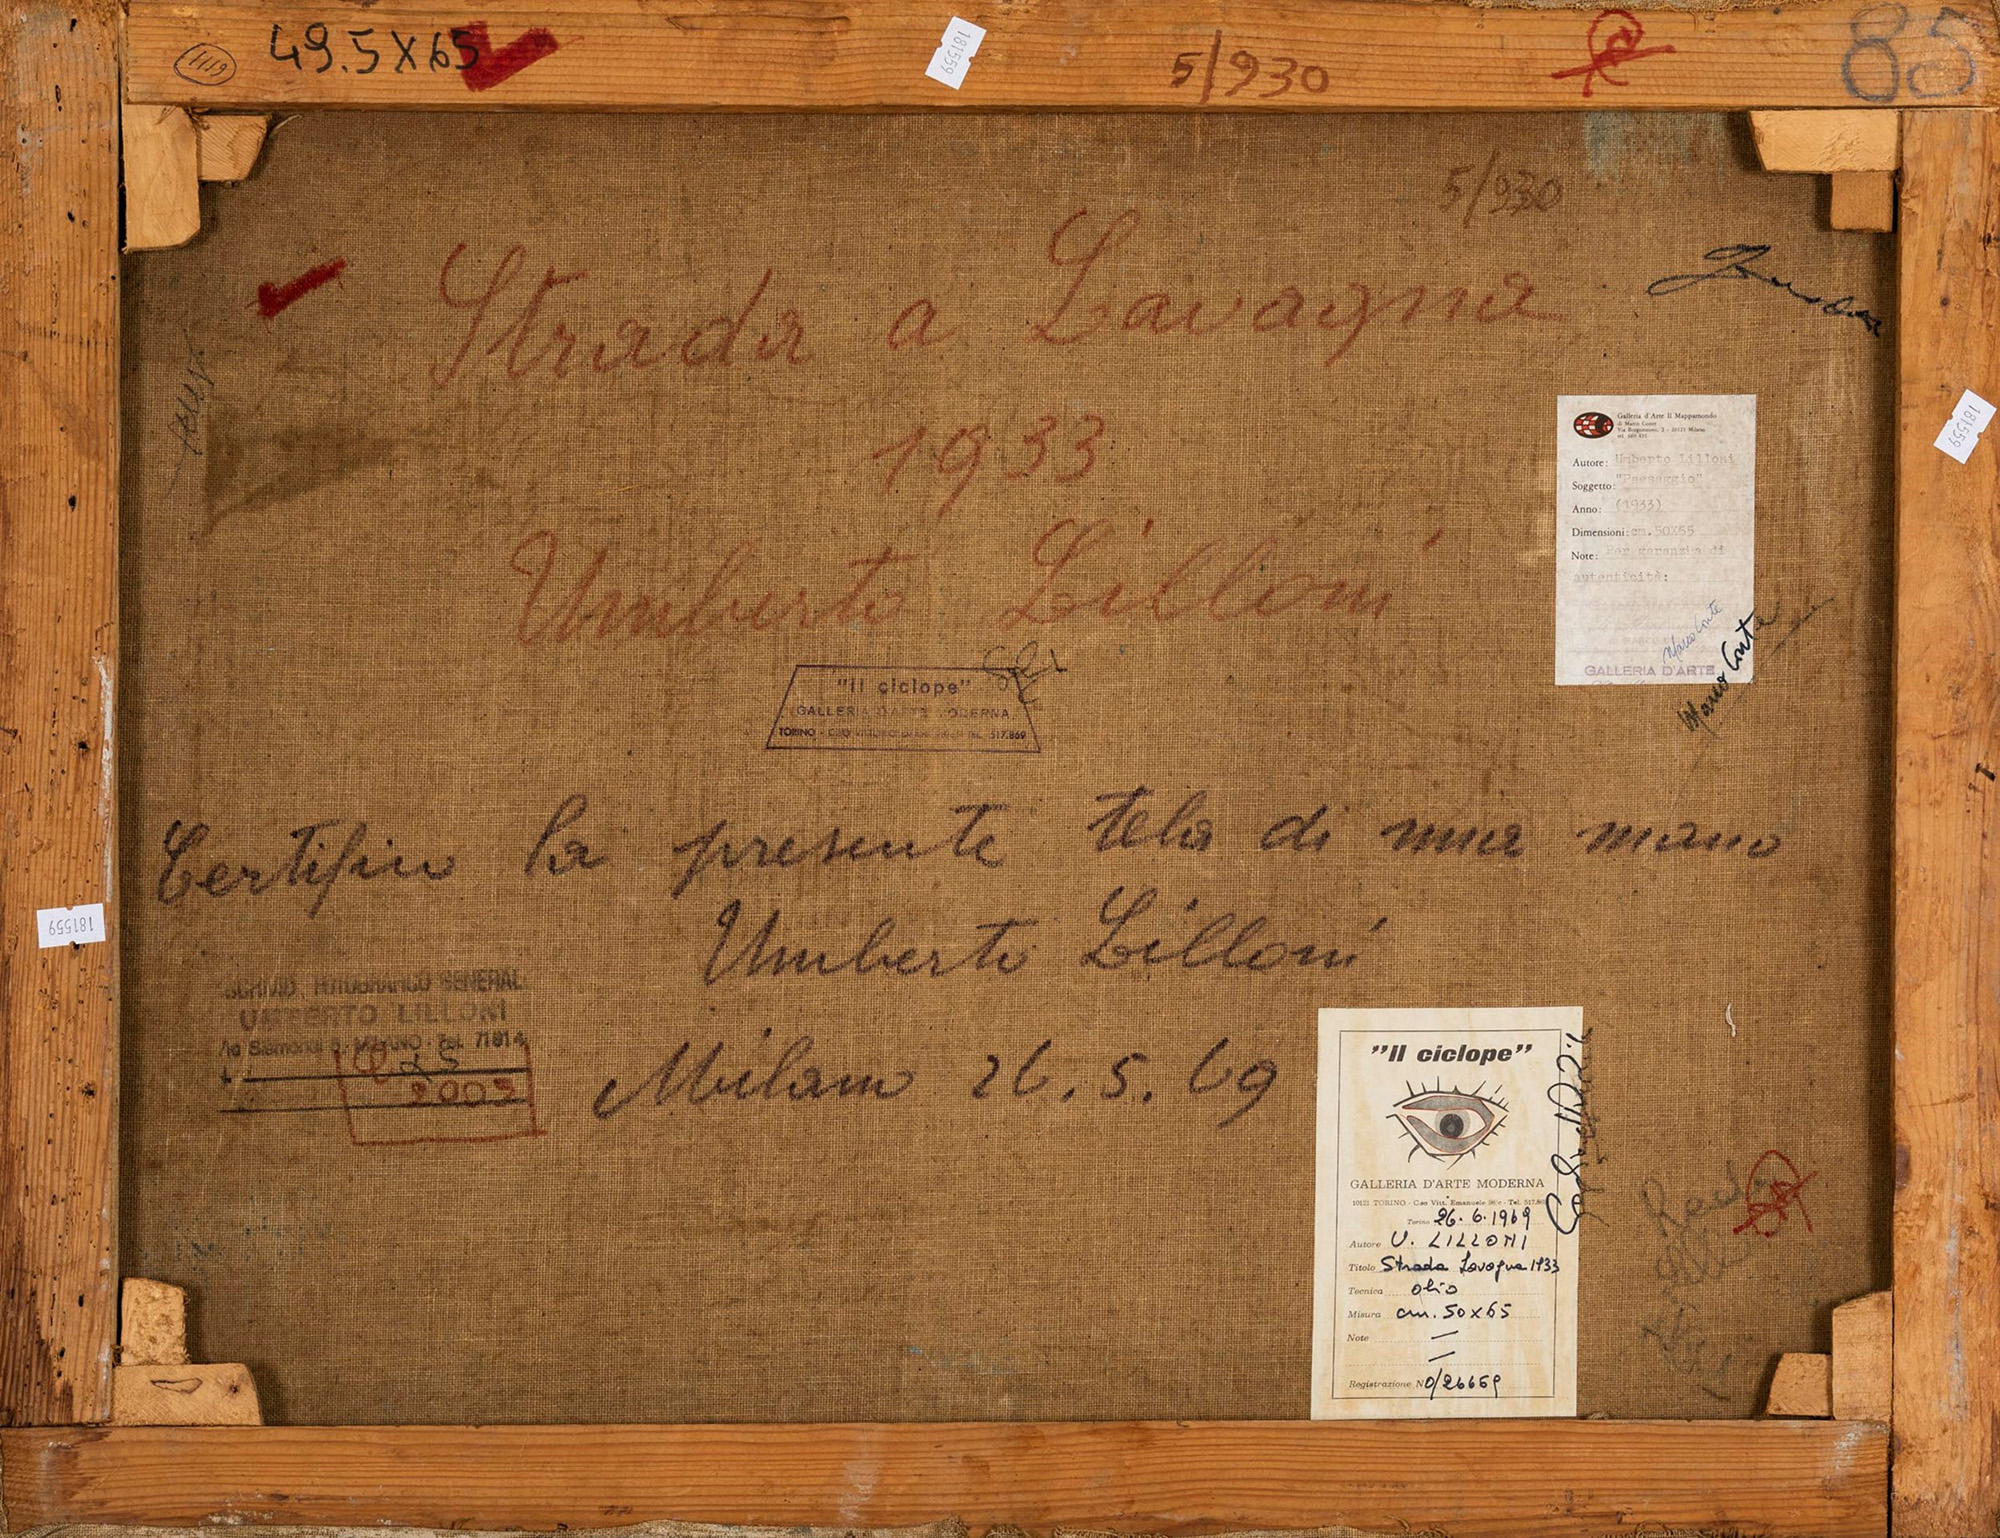 1119
49.5X65
181559
5/930
85
5/930
Strada a Lavagna
1933
Umberto Lilloni
Galleria d'Arte Il Mappamondo
di Marco Conte
181559
Autore: Umberto Lilloni
Soggetto: "Paesaggio"
Anno: (1933)
Dimensioni: cm. 50X65
Note: Per garanzia di
autenticità:
Marco Conte
GALLERIA D'ARTE
Marco Conte
"Il ciclope"
GALLERIA D'ARTE MODERNA
TORINO - CSO VITTORIO EMANUELE TEL. 517.869
Certifico la presente tela di mia mano
Umberto Lilloni
181559
SCHMID, FOTOGRAFICO GENERAL
UMBERTO LILLONI
MILANO - Tel. 71814
25
2003
Milano 26.5.69
"Il ciclope"
GALLERIA D'ARTE MODERNA
10121 TORINO - C.so Vitt. Emanuele
Torino 26.6.1969
Autore U. LILLONI
Titolo Strada Lavagna 1933
Tecnica olio
Misura cm. 50x65
Note —
—
Registrazione N 0/26659